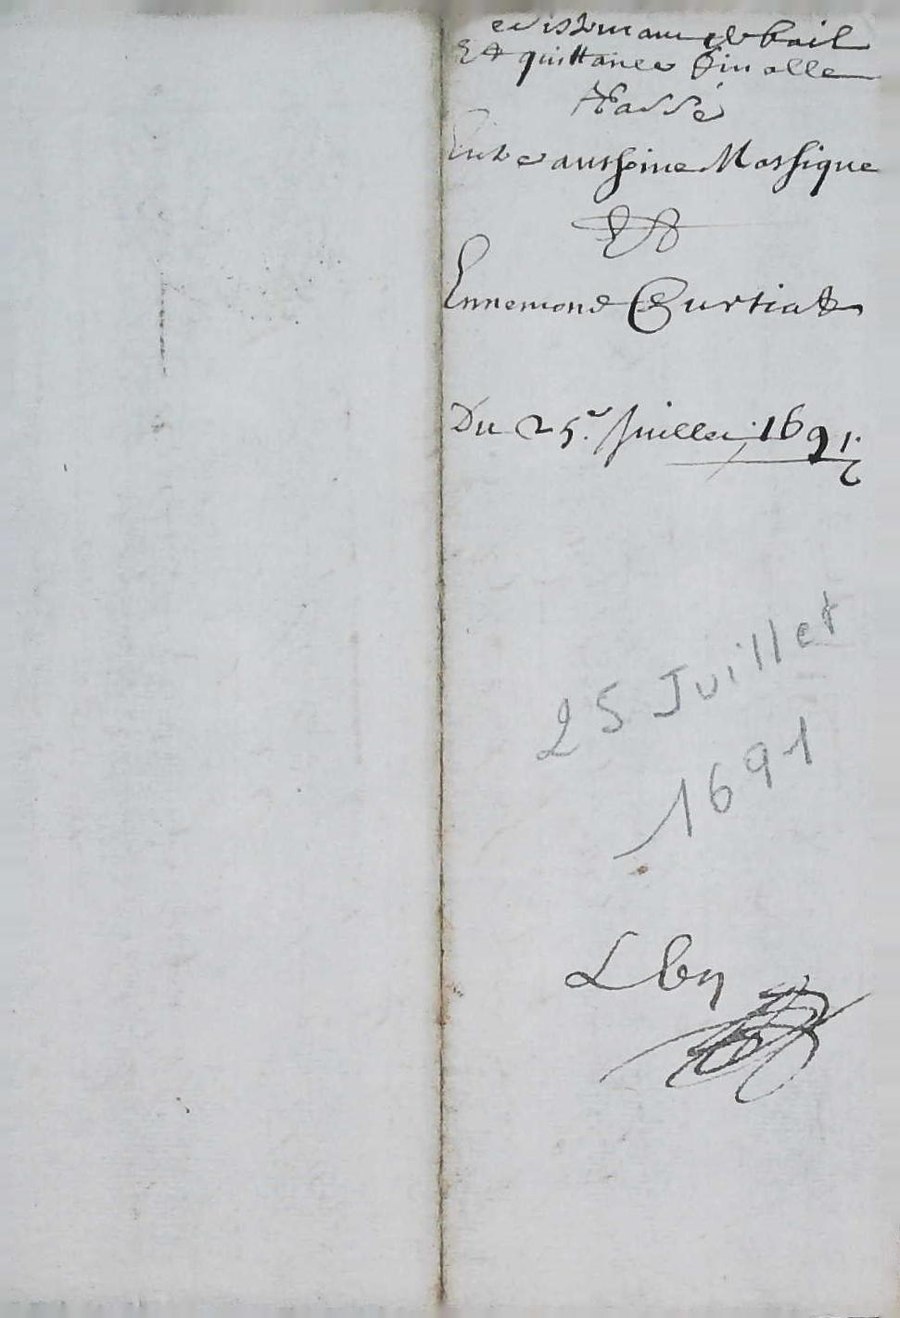 du bail
Et quittance finalle
Passé
Entre anthoine Mathique
Et
Ennemond Curtiat
Du 25e Juillet 1691.
25 Juillet
1691